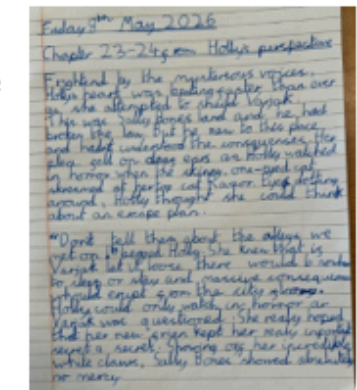 Friday 8th May 2026
Chapter 23-24 from Holly's perspective
Frightend by the mysterious voices,
Holly's heart was faster than ever
as she attempted to Varjak.
This was Sally Bones land and he had
broken the law, but he new to this place
and hadn't understood the consequenses. Her
plea fell on deaf ears as Holly watched
in horror when the skinny, one-eyed cat
screamed at her top cat Razor. Eyes darting
around, Holly thought she could think
about an escape plan.
"Don't tell them about the alleys, we
get on," begged Holly. She knew that is
Varjak let it loose there would b
to or stay and massive consequences
would erupt from the city
Holly could only watch in horror as
Varjak was questioned. She really hoped
that her new kept her really important
secret a secret. her incredible
white claws, Sally Bones showed absolutely
no mercy.